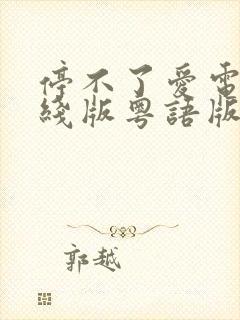 停不了愛電
綫版粵語版
郭越